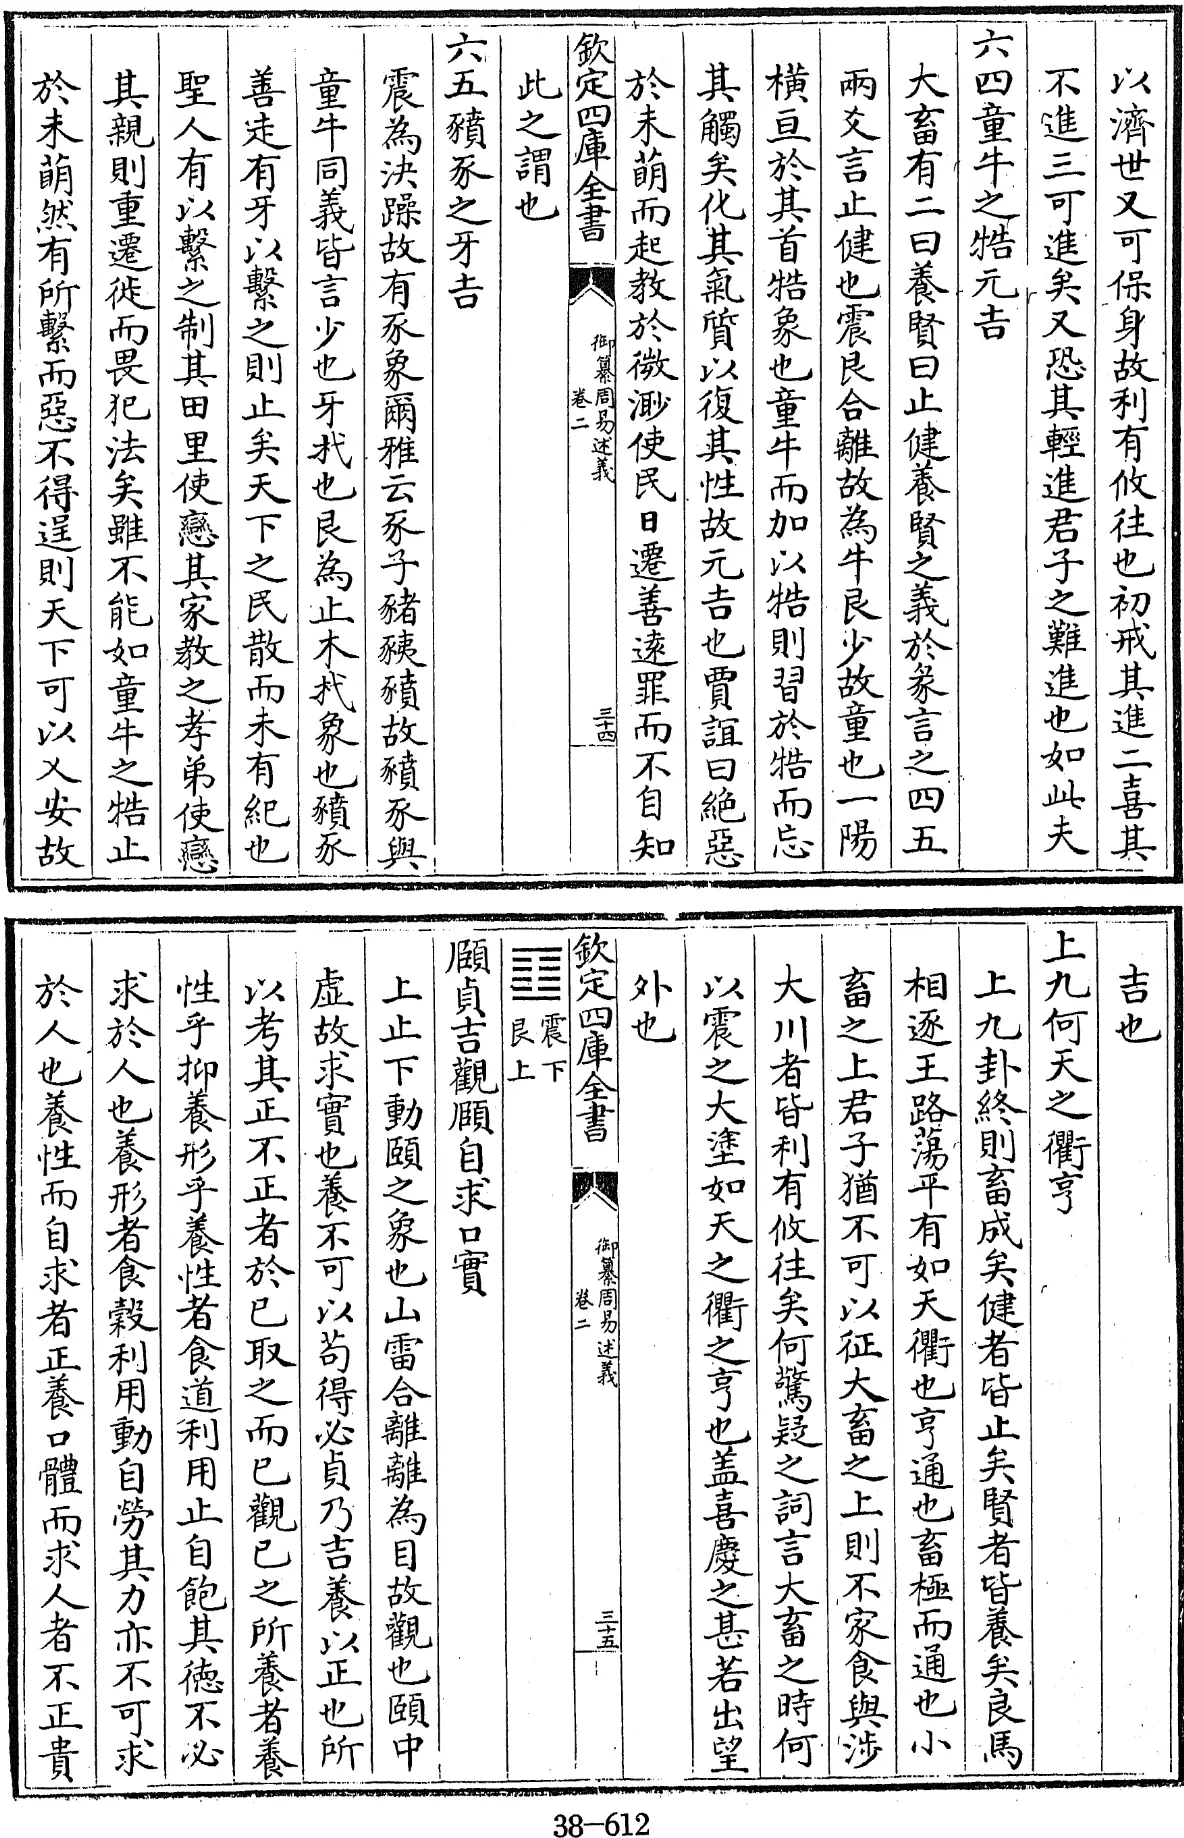 以濟世又可保身故利有攸往也初戒其進二喜其
不進三可進矣又恐其輕進君子之難進也如此夫
六四童牛之牿元吉
大畜有二曰養賢曰止健養賢之義於彖言之四五
兩爻言止健也震艮合離故為牛艮少故童也一陽
橫亘於其首牿象也童牛而加以牿則習於牿而忘
其觸矣化其氣質以復其性故元吉也賈誼曰絶惡
於未萌而起教於微渺使民日遷善逺罪而不自知
欽定四庫全書
御纂周易述義
卷二
三十四
此之謂也
六五豶豕之牙吉
震為決躁故有豕象爾雅云豕子豬䝐豶故豶豕與
童牛同義皆言少也牙杙也艮為止木杙象也豶豕
善走有牙以繫之則止矣天下之民散而未有紀也
聖人有以繫之制其田里使戀其家教之孝弟使戀
其親則重遷徙而畏犯法矣雖不能如童牛之牿止
於未萌然有所繫而惡不得逞則天下可以乂安故
吉也
上九何天之衢亨
上九卦終則畜成矣健者皆止矣賢者皆養矣良馬
相逐王路蕩平有如天衢也亨通也畜極而通也小
畜之上君子猶不可以征大畜之上則不家食與涉
大川者皆利有攸往矣何驚疑之詞言大畜之時何
以震之大塗如天之衢之亨也盖喜慶之甚若出望
外也
欽定四庫全書
御纂周易述義
卷二
三十五
震下
艮上
頤貞吉觀頤自求口實
上止下動頤之象也山雷合離離為目故觀也頤中
虛故求實也養不可以苟得必貞乃吉養以正也所
以考其正不正者於已取之而已觀已之所養者養
性乎抑養形乎養性者食道利用止自飽其徳不必
求於人也養形者食榖利用動自勞其力亦不可求
於人也養性而自求者正養口體而求人者不正貴
38-612